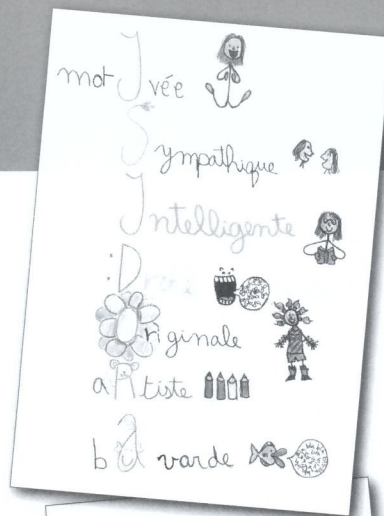 motIvée
Sympathique
Intelligente
Originale
aRtiste
bAvarde